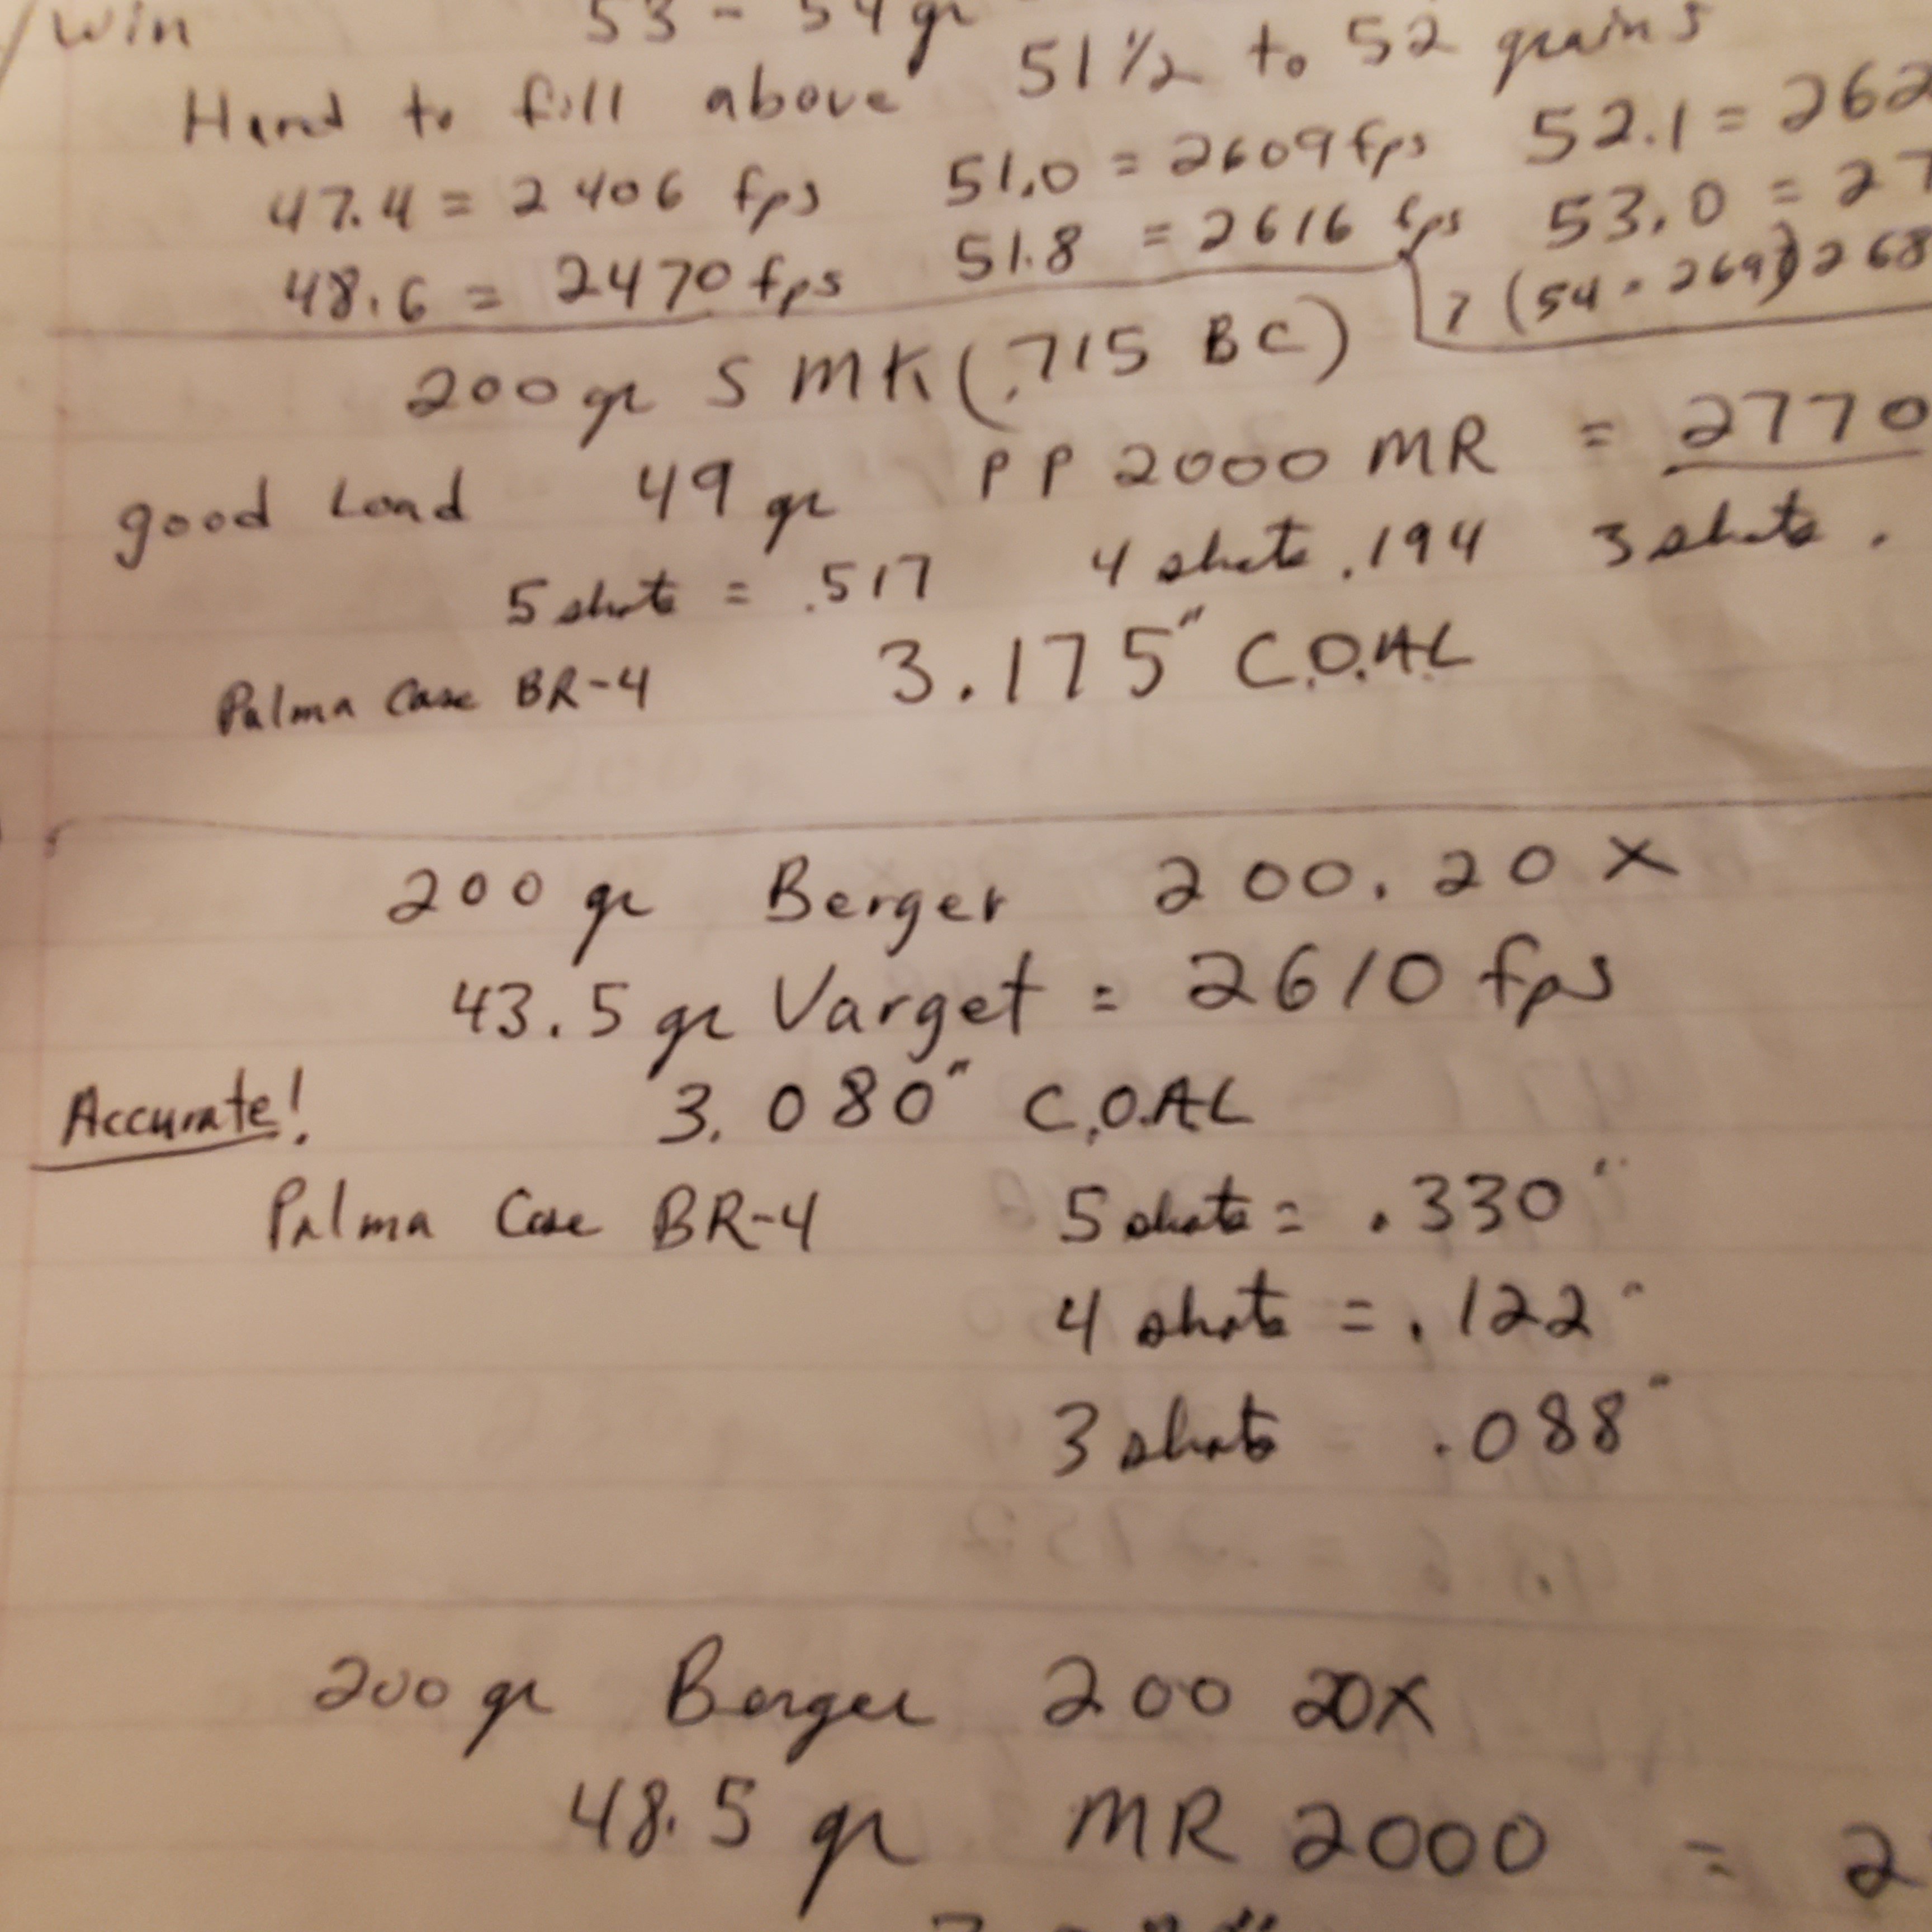 Win 53 - 54 gr
Hard to fill above 51 1/2 to 52 grains
47.4 = 2406 fps 51.0 = 2609 fps 52.1 = 262
48.6 = 2470 fps 51.8 = 2616 fps 53.0 = 27
? (54 = 269 268
200 gr SMK (.715 BC)
good Load 49 gr PP 2000 MR = 2770
5 shots = .517 4 shots .194 3 shots .
Palma Case BR-4 3.175" C.O.A.L
200 gr Berger 200.20X
43.5 gr Varget = 2610 fps
Accurate! 3.080" C.O.AL
Palma Case BR-4 5 shots = .330"
4 shots = .122"
3 shots .088"
200 gr Berger 200 20X
48.5 gr MR 2000 = 2